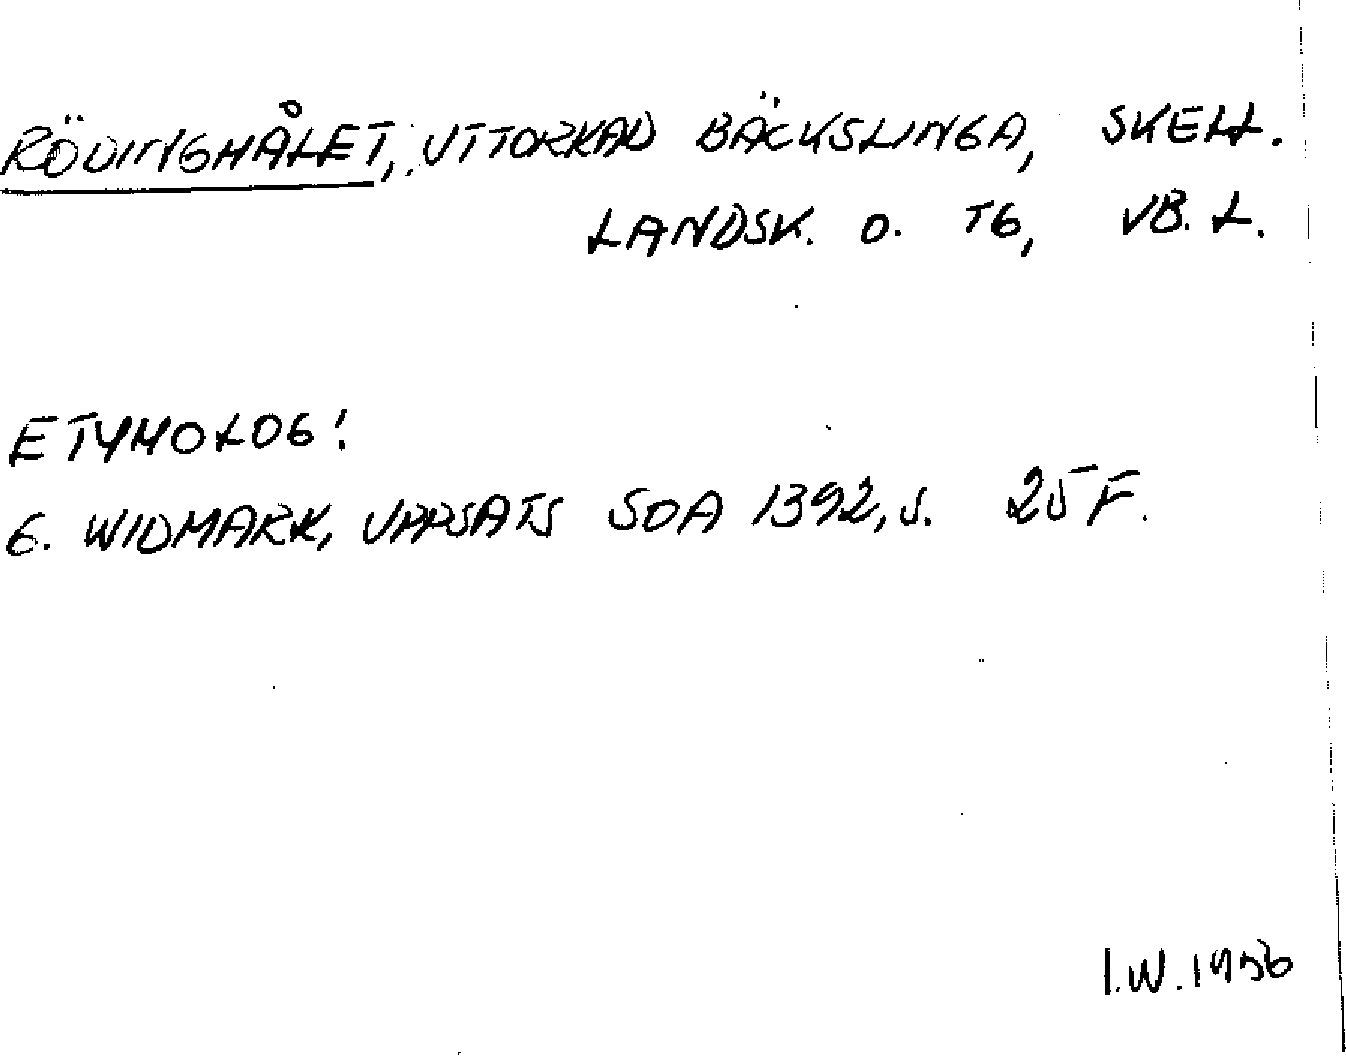 RÖDINGHÅLET, UTTORKAD BÄCKSLINGA, SKELL.
LANDSK. O. TG, VB. L.
ETYMOLOG!
G. WIDMARK, UPPSATS SOA 1392, S. 25 F.
I.W. 1956